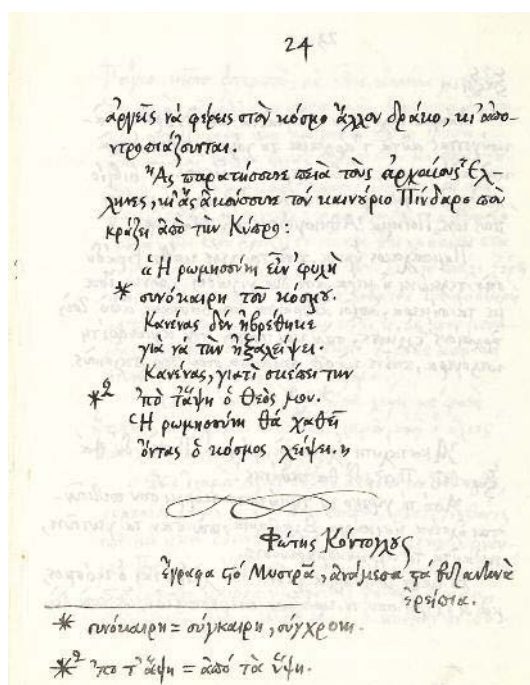 24
ἀργεῖς νά φέρεις στόν κόσμο ἄλλον δράκο, κι' ἀπο-
ντροπιάζουνται.
Ἄς παρατήσουνε πειά τούς ἀρχαίους Ἕλ-
ληνες, κι' ἄς ἀκούσουνε τόν καινούριο Πίνδαρο πού
κράζει ἀπό τήν Κύπρο:
«Ἡ ρωμηοσύνη εἶν' φυλή
* συνόκαιρη τοῦ κόσμου.
Κανένας δέν ἡβρέθηκε
γιά νά τήν ἠξαλείψει.
Κανένας, γιατί σκέπει την
*2 'πό τἄψη ὁ Θεός μου.
Ἡ ρωμηοσύνη θά χαθεῖ
ὄντας ὁ κόσμος λείψει.»
Φώτης Κόντογλους
ἔγραφα στό Μυστρᾶ, ἀνάμεσα στά βυζαντινά
ἐρείπια.
* συνόκαιρη = σύγκαιρη, σύγχρονη.
*2 'πό τ' ἄψη = ἀπό τά ὕψη.